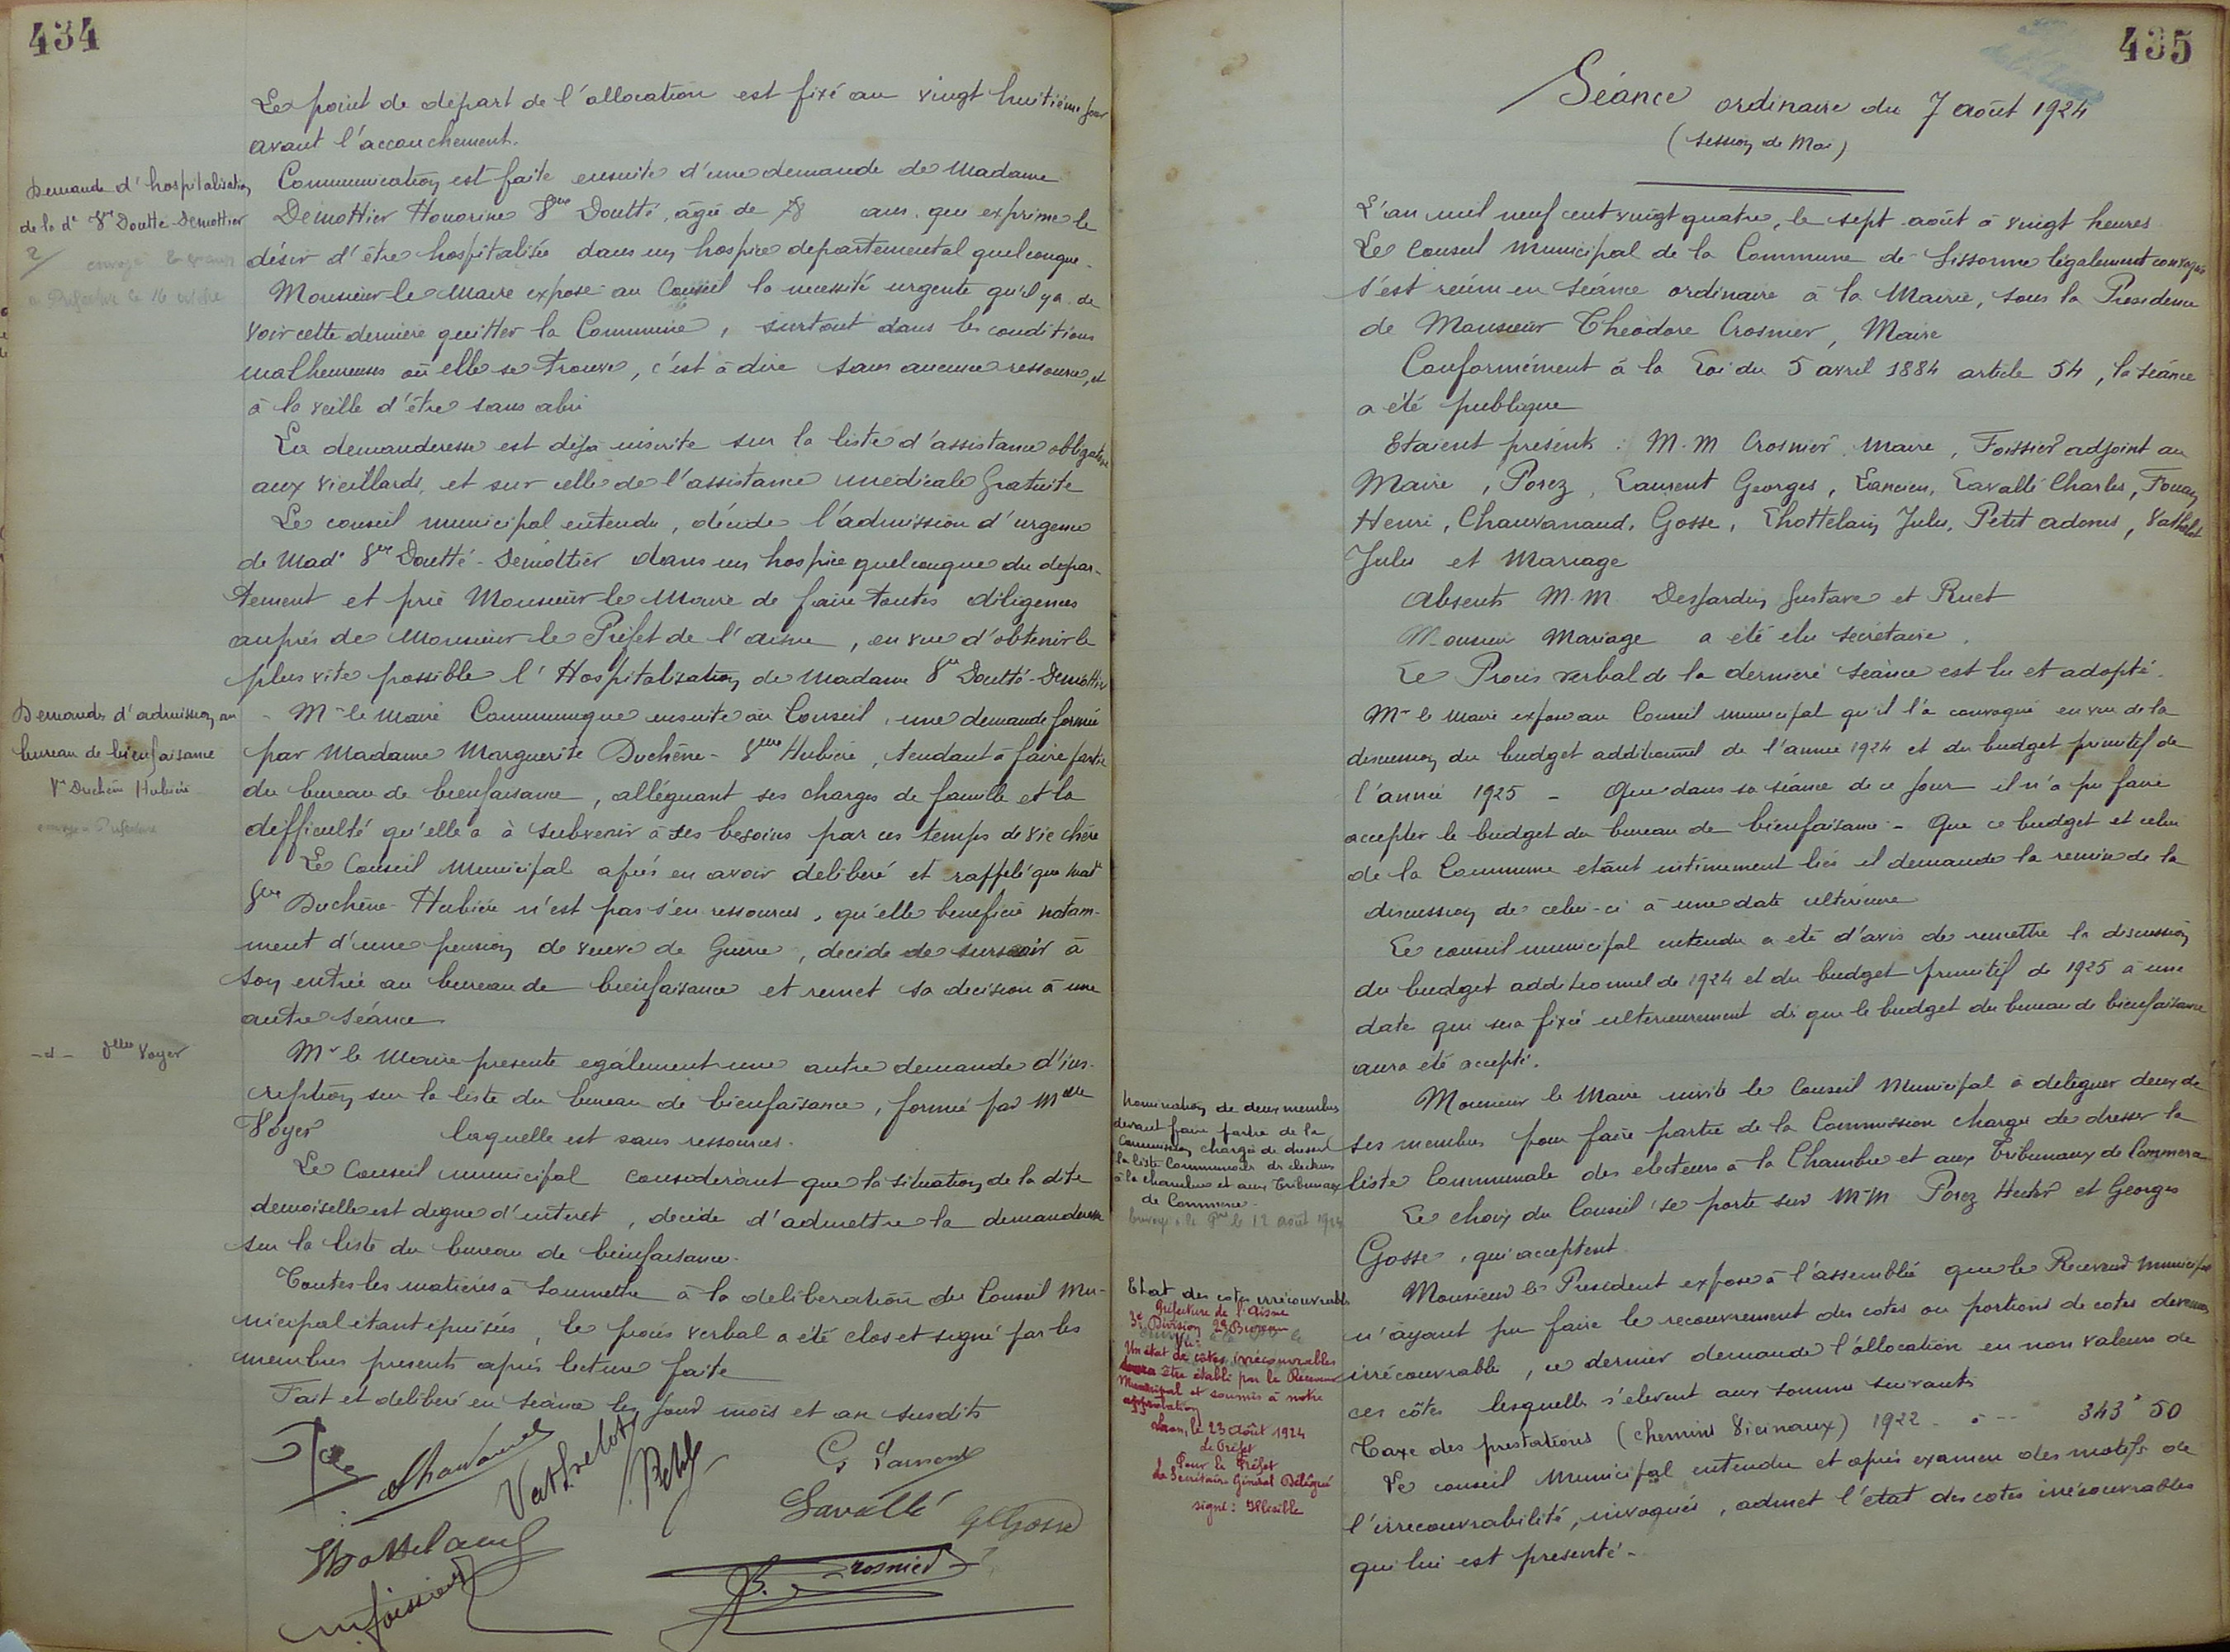 434
Le point de départ de l'allocation est fixé au vingt huitième jour
avant l'accouchement.
Demande d'hospitalisation
de la de Vve Doutté-Demottier
Communication est faite ensuite d'une demande de Madame
Demottier Honorine Vve Doutté, âgée de 78 ans, qui exprime le
désir d'être hospitalisée dans un hospice départemental quelconque.
Monsieur le Maire expose au Conseil la nécessité urgente qu'il y a de
voir cette dernière quitter la Commune, surtout dans les conditions
malheureuses où elle se trouve, c'est à dire sans aucune ressource, et
à la veille d'être sans abri
La demanderesse est déjà inscrite sur la liste d'assistance obligatoire
aux vieillards, et sur celle de l'assistance médicale Gratuite
Le conseil municipal entendu, décide l'admission d'urgence
de Made Vve Doutté-Demottier dans un hospice quelconque du dépar-
tement et prie Monsieur le Maire de faire toutes diligences
auprès de Monsieur le Préfet de l'aisne, en vue d'obtenir le
plus vite possible l'Hospitalisation de Madame Vve Doutté-Demottier
Demande d'admission au
bureau de bienfaisance
Ve Duchêne Hubière
- Mr le Maire Communique ensuite au Conseil, une demande formée
par Madame Marguerite Duchêne - Vve Hubière, tendant à faire partie
du bureau de bienfaisance, alléguant ses charges de famille et la
difficulté qu'elle a à subvenir à ses besoins par ces temps de vie chère
Le Conseil Municipal après en avoir délibéré et rappelé que Made
Vve Duchêne-Hubière n'est pas s'en ressources, qu'elle bénéficie notam-
ment d'une pension de veuve de Guerre, decide de surseoir à
son entrée au bureau de bienfaisance et remet sa decision à une
autre séance
-d- Melle Voyer
Mr le Maire presente également une autre demande d'ins-
cription sur la liste du bureau de bienfaisance, formée par Melle
Voyer laquelle est sans ressources.
Le Conseil municipal considérant que la situation de la dite
demoiselle est digne d'interet, decide d'admettre la demanderesse
sur la liste du bureau de bienfaisance.
Toutes les matières à soumettre à la deliberation du Conseil Mu-
nicipal étant épuisées, le procès verbal a été clos et signé par les
membres presents après lecture faite
Fait et deliberé en séance les jour mois et an susdits
Chauvanaud
Vathelot
Petit
G Laurent
Lavallé
G Gosse
Lhottelain
Foissier
Crosnier
435
Séance ordinaire du 7 août 1924
(session de Mai)
L'an mil neuf cent vingt quatre, le sept août à vingt heures
Le Conseil Municipal de la Commune de Sissonne légalement convoqué
s'est réuni en séance ordinaire à la Mairie, sous la Présidence
de Monsieur Théodore Crosnier, Maire
Conformément à la Loi du 5 avril 1884 article 54, la séance
a été publique
Etaient présents : M.M Crosnier maire, Foissier adjoint au
Maire, Posez, Laurent Georges, Lancien, Lavallé Charles, Fouan
Henri, Chauvanaud, Gosse, Lhottelain Jules, Petit adonis, Vathelot
Jules et Mariage
Absents M.M Desjardins Gustave et Ruet
Monsieur Mariage a été élu secrétaire.
Le Procès verbal de la dernière séance est lu et adopté.
Mr le Maire expose au Conseil municipal qu'il l'a convoqué en vue de la
discussion du budget additionnel de l'année 1924 et du budget primitif de
l'année 1925 - Que dans sa séance de ce jour il n'a pu faire
accepter le budget du bureau de bienfaisance - Que ce budget et celui
de la Commune étant intimement liés il demande la remise de la
discussion de celui-ci à une date ultérieure
Le conseil municipal entendu a été d'avis de remettre la discussion
du budget additionnel de 1924 et du budget primitif de 1925 à une
date qui sera fixée ultérieurement dès que le budget du bureau de bienfaisance
aura été accepté.
Nomination de deux membres
devant faire partie de la
Commission chargée de dresser
la liste Communale des electeurs
à la Chambre et aux Tribunaux
de Commerce
Envoyé à la Pre le 12 août 1924
Monsieur le Maire invite le Conseil Municipal à déléguer deux de
ses membres pour faire partie de la Commission chargée de dresser la
liste Communale des electeurs à la Chambre et aux Tribunaux de Commerce
Le choix du Conseil se porte sur M.M Posez Hector et Georges
Gosse, qui acceptent
Etat des cotes irrécouvrables
Préfecture de l'Aisne
3e Division 2e Bureau
Vu:
Un état de côtes irrécouvrables
devra être établi par le Receveur
Municipal et soumis à notre
approbation
Laon, le 23 Août 1924
Le Préfet
Pour le Préfet
Le Secrétaire Général Délégué
signé: Illisible
Monsieur le Président expose à l'assemblée que le Receveur Municipal
n'ayant pu faire le recouvrement des cotes ou portions de cotes devenues
irrécouvrables, ce dernier demande l'allocation en non valeurs de
ces côtes lesquelles s'élèvent aux sommes suivantes
Taxe des prestations (chemins Vicinaux) 1922 - - - 343f 50
Le conseil Municipal entendu et après examen des motifs de
l'irrecouvrabilité, invoqués, admet l'état des cotes irrécouvrables
qui lui est présenté -